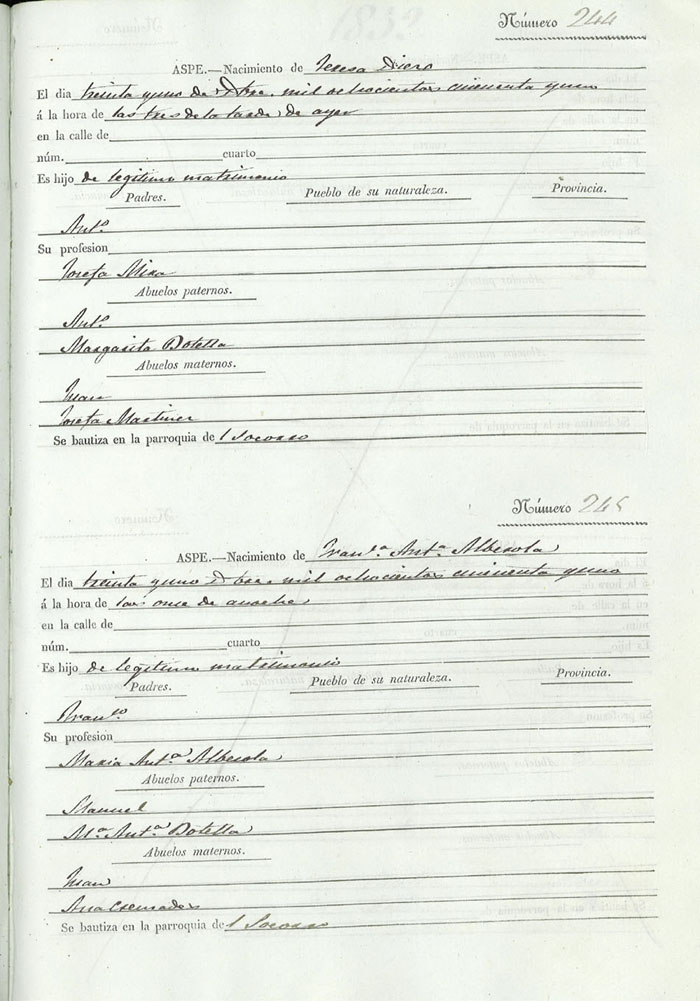 Número 244
ASPE.—Nacimiento de Teresa
El dia treinta y uno de Dbre. mil ochocientos cincuenta y uno
á la hora de las tres de la tarde de ayer
en la calle de
núm. cuarto
Es hijo de legitimo matrimonio
Padres. Pueblo de su naturaleza. Provincia.
Ant.º
Su profesion
Josefa Mira
Abuelos paternos.
Ant.º
Margarita Botella
Abuelos maternos.
Juan
Josefa Martinez
Se bautiza en la parroquia de l Socorro
Número 245
ASPE.—Nacimiento de Fran.ca Ant.a Alberola
El dia treinta y uno Dbre. mil ochocientos cincuenta y uno
á la hora de las once de anoche
en la calle de
núm. cuarto
Es hijo de legitimo matrimonio
Padres. Pueblo de su naturaleza. Provincia.
Fran.co
Su profesion
Maria Ant.a Alberola
Abuelos paternos.
Manuel
M.a Ant.a Botella
Abuelos maternos.
Juan
Ana
Se bautiza en la parroquia de l Socorro